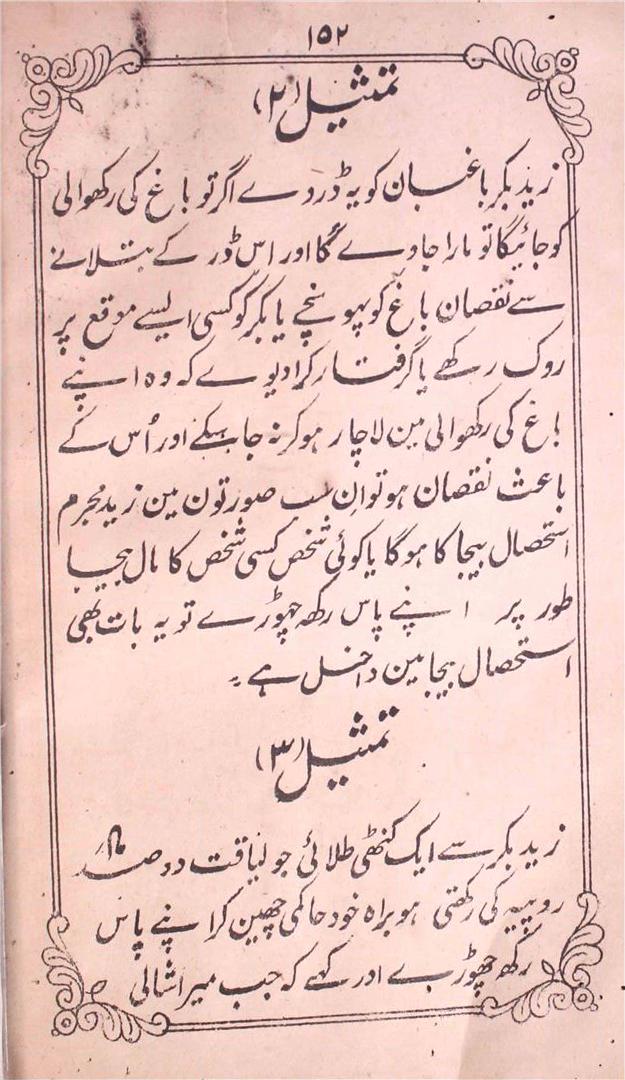 ۱۵۲
تمثیل (۲)
زید بکر باغبان کو یہ ڈر دے اگر تو باغ کی رکھوالی
کو جائیگا تو مارا جاوے گا اور اس ڈر کے بتلانے
سے نقصان باغ کو پہونچے یا بکر کو کسی ایسے موقع پر
روک رکھے یا گرفتار کرا دیوے کہ وہ اپنے
باغ کی رکھوالی مین لاچار ہو کر نہ جا سکے اور اُس کے
باعث نقصان ہو تو ان سب صورتون مین زید مجرم
استحصال بیجا کا ہوگا یا کوئی شخص کسی شخص کا مال بیجا
طور پر اپنے پاس رکھ چہوڑے تو یہ بات بھی
استحصال بیجا مین داخل ہے ۔
تمثیل (۳)
زید بکر سے ایک کنٹھی طلائی جو لیاقت دو صد
روپیہ کی رکھتی ہو براہ خود حاکمی چھین کر اپنے پاس
رکھ چھوڑے اور کہے کہ جب میرا شالی